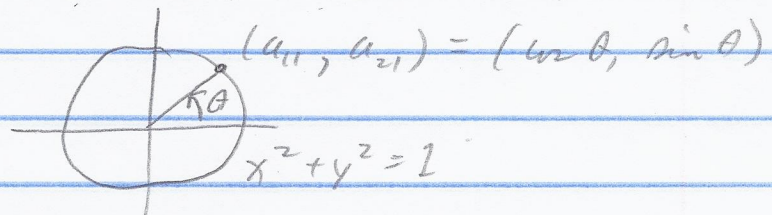 (a₁₁, a₂₁) = (cos θ, sin θ)
θ
x² + y² = 1